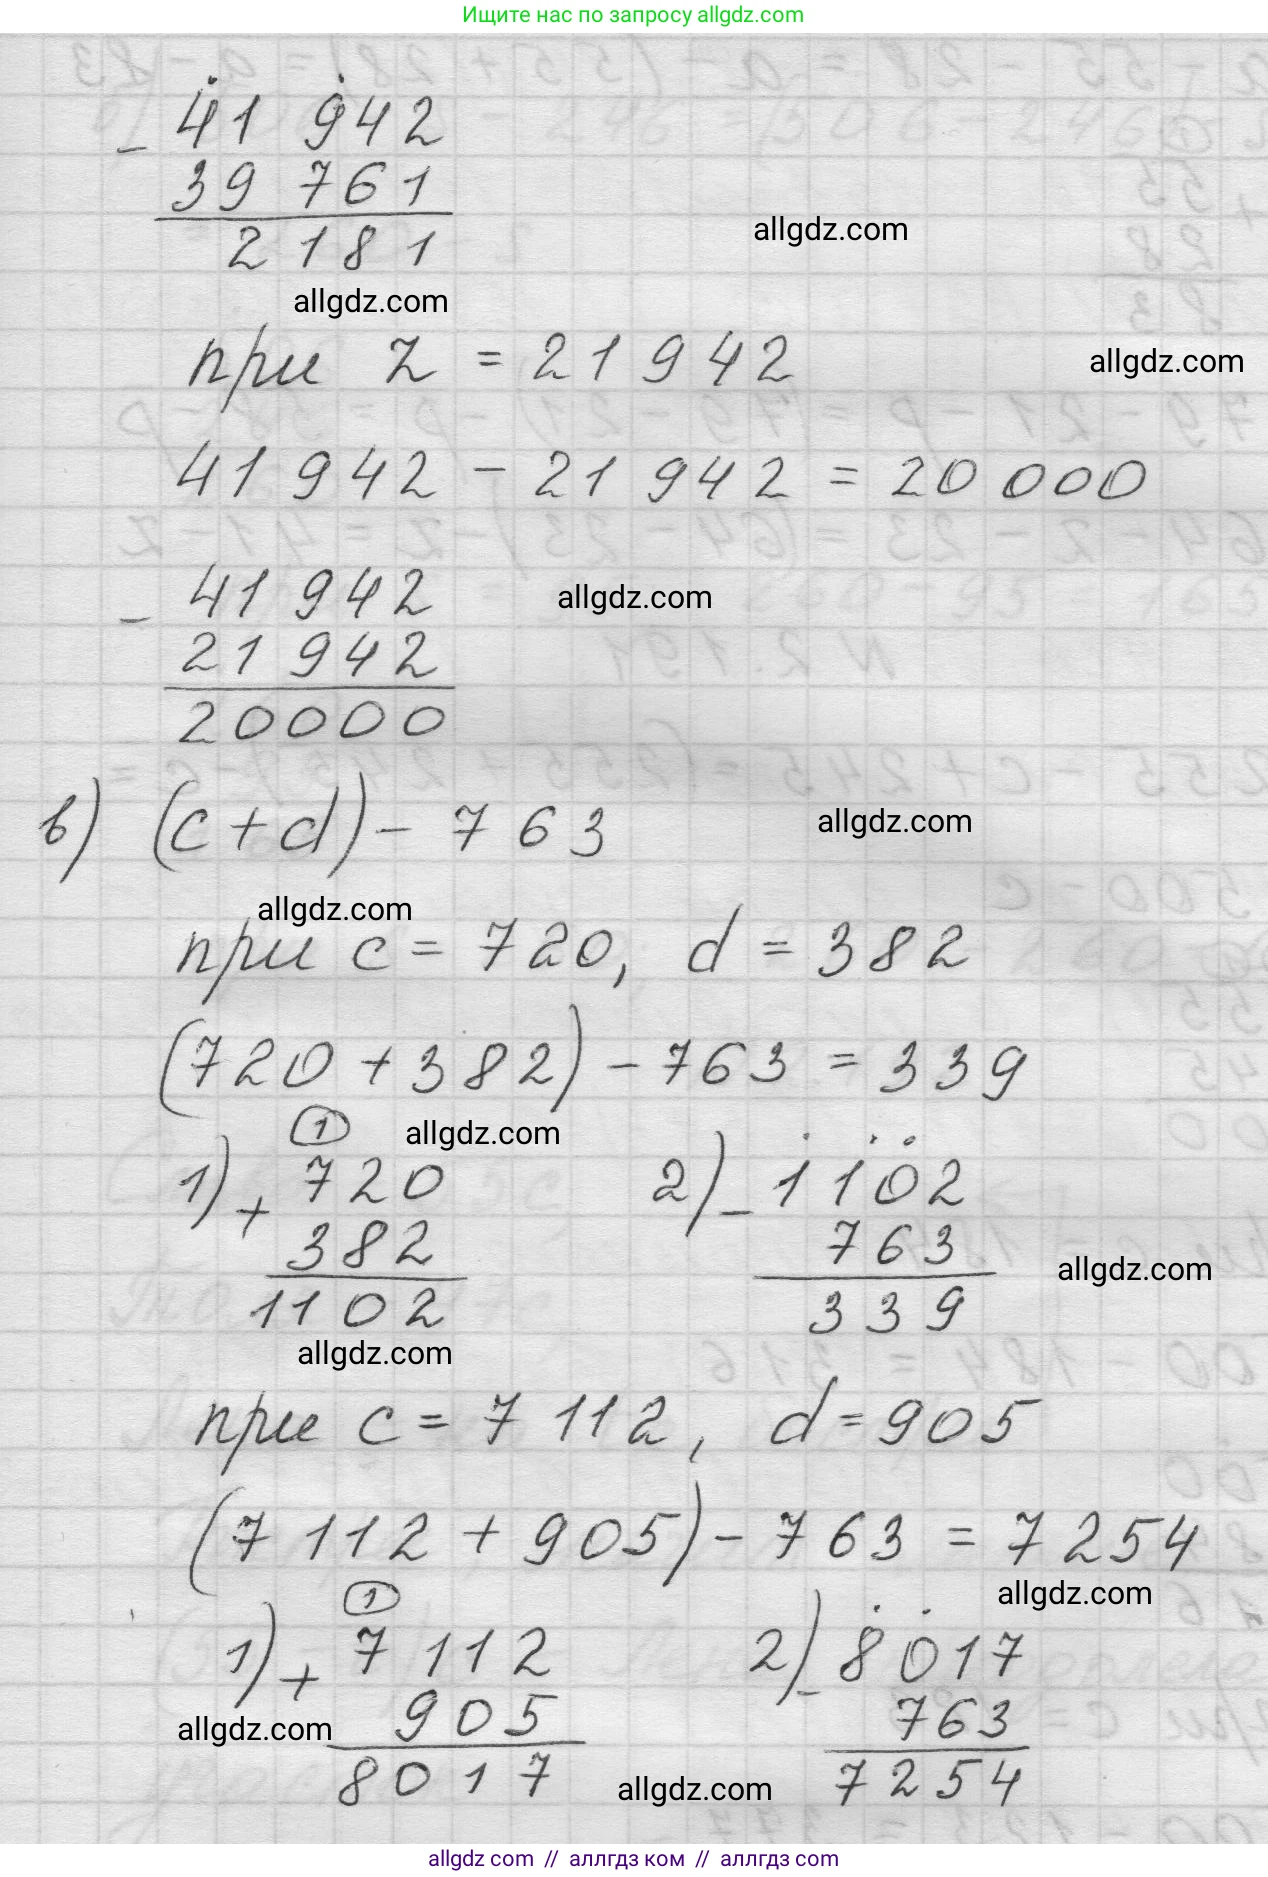 Ищите нас по запросу allgdz.com
41 942
- 39 761
2 181
allgdz.com
allgdz.com
при z = 21 942
allgdz.com
41 942 - 21 942 = 20 000
41 942
- 21 942
20000
allgdz.com
в) (c+d) - 763
allgdz.com
allgdz.com
при c = 720, d = 382
(720 + 382) - 763 = 339
1
allgdz.com
1) + 720 2) - 1102
382 763
1102 339
allgdz.com
allgdz.com
при c = 7 112, d = 905
(7 112 + 905) - 763 = 7 254
allgdz.com
1
1) + 7 112 2) - 8017
905 763
8017 7254
allgdz.com
allgdz.com
allgdz com // аллгдз ком // allgdz com